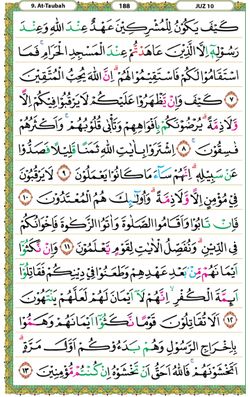 9. At-Taubah 188 JUZ 10
كَيْفَ يَكُوْنُ لِلْمُشْرِكِيْنَ عَهْدٌ عِنْدَ اللّٰهِ وَعِنْدَ
رَسُوْلِهٖٓ اِلَّا الَّذِيْنَ عَاهَدْتُّمْ عِنْدَ الْمَسْجِدِ الْحَرَامِۚ فَمَا
اسْتَقَامُوْا لَكُمْ فَاسْتَقِيْمُوْا لَهُمْۗ اِنَّ اللّٰهَ يُحِبُّ الْمُتَّقِيْنَ
٧ كَيْفَ وَاِنْ يَّظْهَرُوْا عَلَيْكُمْ لَا يَرْقُبُوْا فِيْكُمْ اِلًّا
وَّلَا ذِمَّةًۗ يُرْضُوْنَكُمْ بِاَفْوَاهِهِمْ وَتَأْبٰى قُلُوْبُهُمْۚ وَاَكْثَرُهُمْ
فٰسِقُوْنَۚ ٨ اِشْتَرَوْا بِاٰيٰتِ اللّٰهِ ثَمَنًا قَلِيْلًا فَصَدُّوْا
عَنْ سَبِيْلِهٖۗ اِنَّهُمْ سَاۤءَ مَاكَانُوْا يَعْمَلُوْنَ ٩ لَا يَرْقُبُوْنَ
فِيْ مُؤْمِنٍ اِلًّا وَّلَا ذِمَّةًۗ وَاُولٰۤىِٕكَ هُمُ الْمُعْتَدُوْنَ ١٠
فَاِنْ تَابُوْا وَاَقَامُوا الصَّلٰوةَ وَاٰتَوُا الزَّكٰوةَ فَاِخْوَانُكُمْ
فِى الدِّيْنِۗ وَنُفَصِّلُ الْاٰيٰتِ لِقَوْمٍ يَّعْلَمُوْنَ ١١ وَاِنْ نَّكَثُوْٓا
اَيْمَانَهُمْ مِّنْۢ بَعْدِ عَهْدِهِمْ وَطَعَنُوْا فِيْ دِيْنِكُمْ فَقَاتِلُوْٓا
اَىِٕمَّةَ الْكُفْرِۙ اِنَّهُمْ لَآ اَيْمَانَ لَهُمْ لَعَلَّهُمْ يَنْتَهُوْنَ
١٢ اَلَا تُقَاتِلُوْنَ قَوْمًا نَّكَثُوْٓا اَيْمَانَهُمْ وَهَمُّوْا
بِاِخْرَاجِ الرَّسُوْلِ وَهُمْ بَدَءُوْكُمْ اَوَّلَ مَرَّةٍۗ
اَتَخْشَوْنَهُمْۚ فَاللّٰهُ اَحَقُّ اَنْ تَخْشَوْهُ اِنْ كُنْتُمْ مُّؤْمِنِيْنَ ١٣